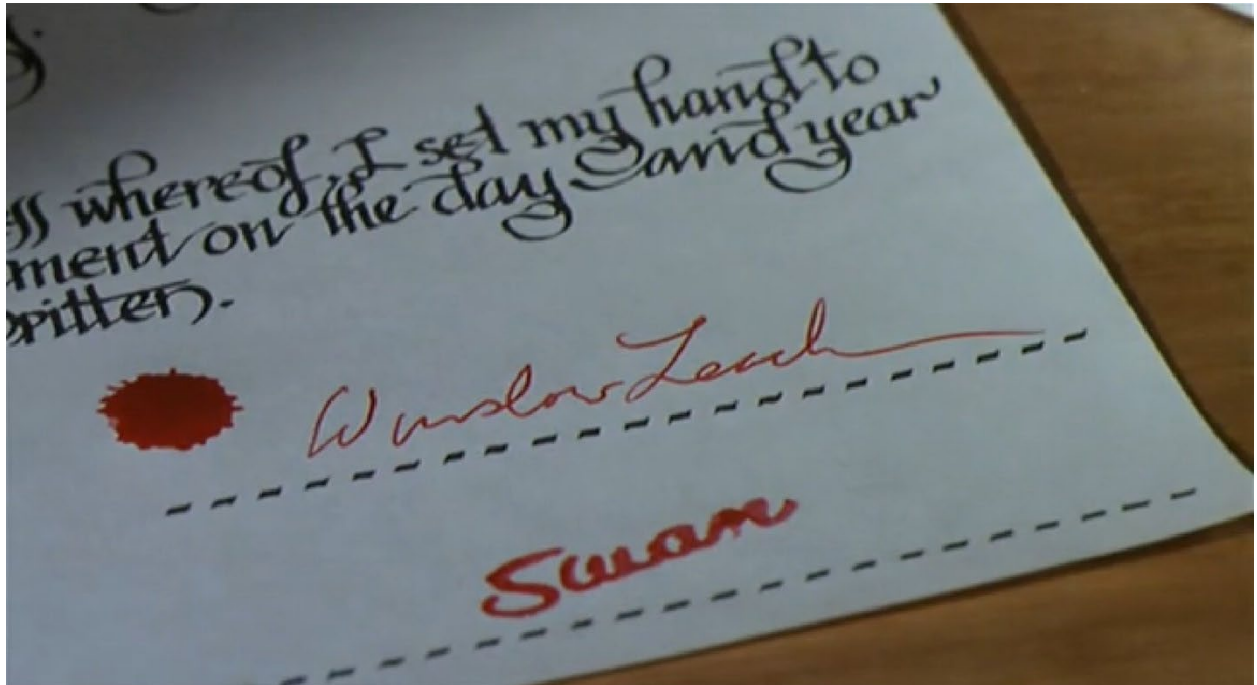 ss whereof, I set my hand to
ment on the day and year
written.
Winslow Leach
Swan